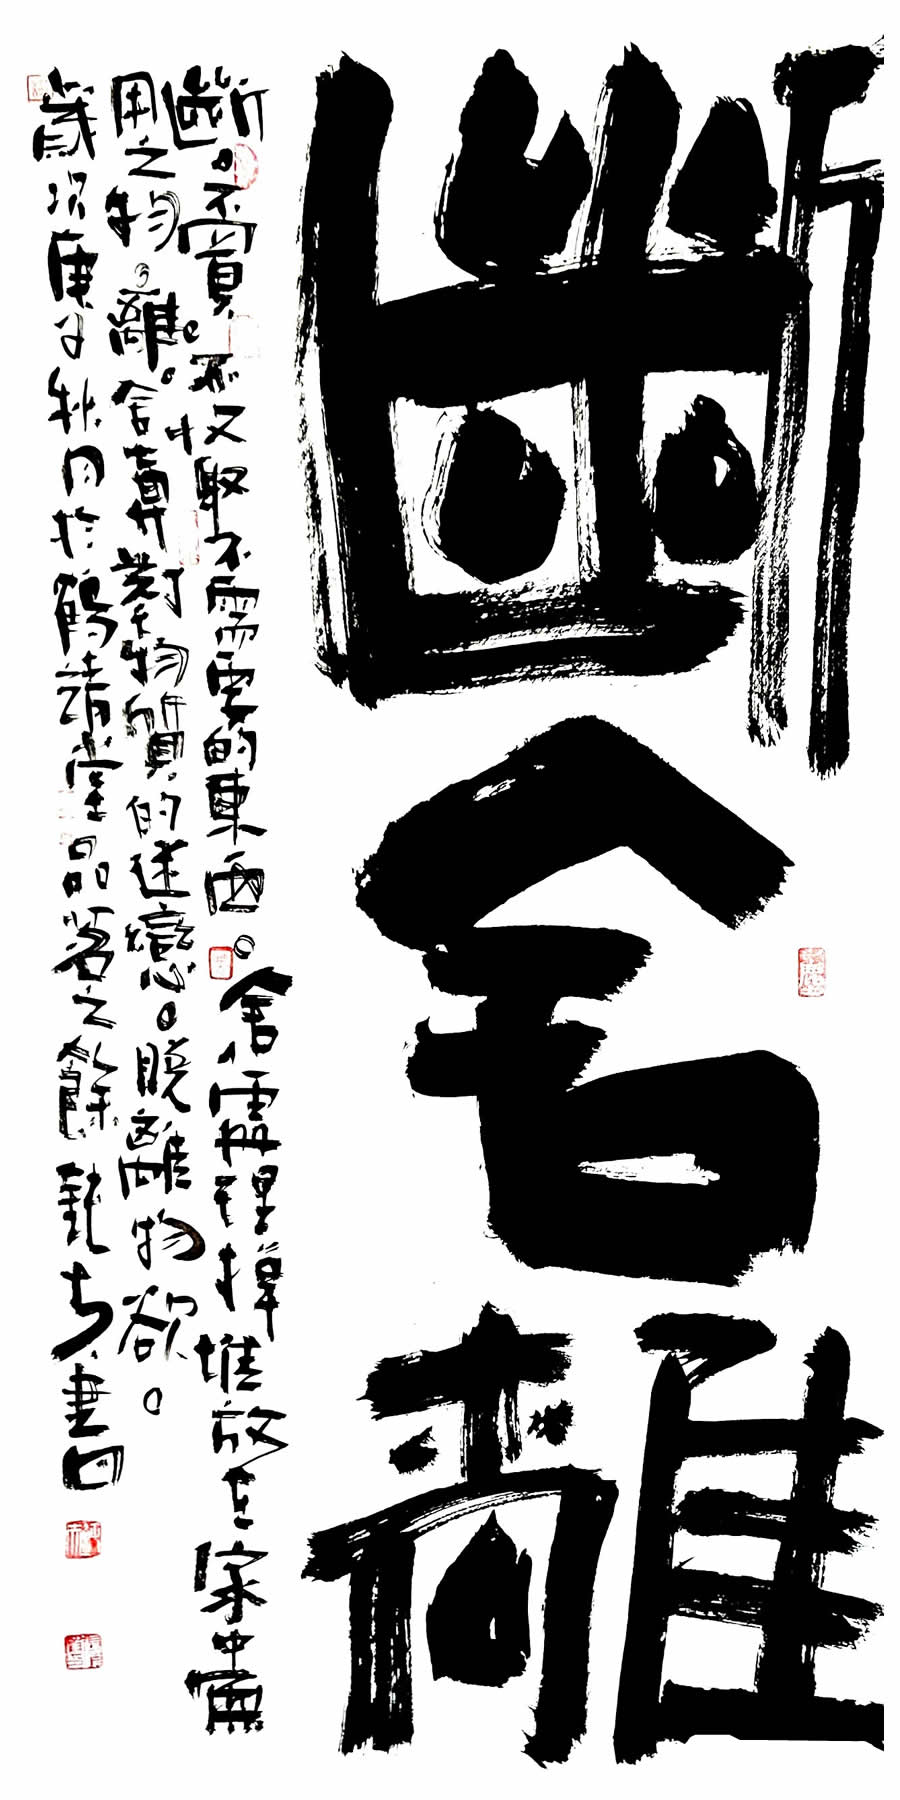 斷舍離
斷。不買。不收取不需要的東西。舍、處理掉堆放在家中無
用之物。離。舍棄對物質的迷戀。脫離物欲。
歲次庚子秋月於鶴靖堂品茗之餘 書